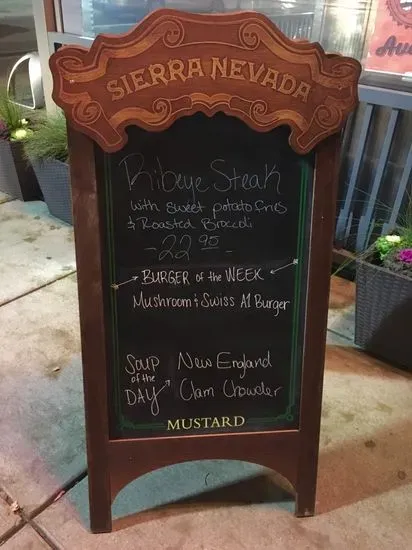 SIERRA NEVADA
Ribeye Steak
with sweet potato fries
& Roasted Broccoli
- 22.95 -
BURGER of the WEEK
Mushroom & Swiss A1 Burger
SOUP
of the
DAY
New England
Clam Chowder
MUSTARD